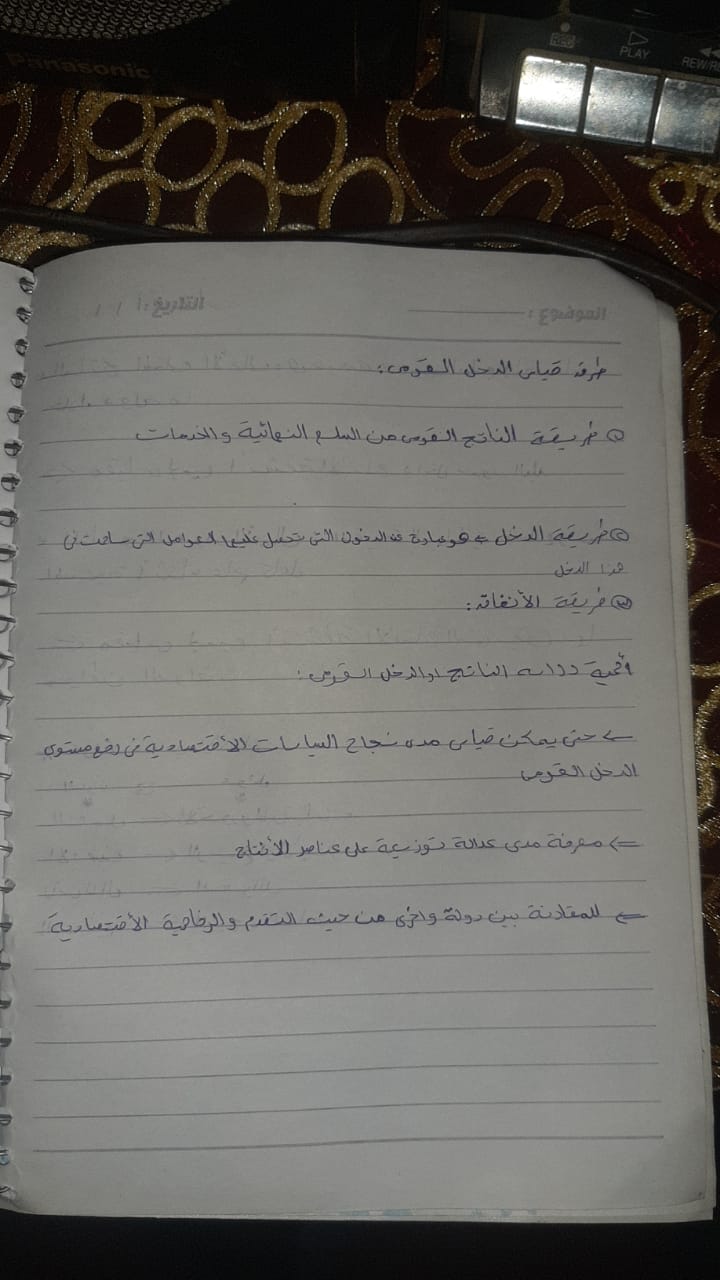 Panasonic
REC PLAY REW/R
الموضوع : التاريخ : / /
طرق قياس الدخل القومى :
① طريقة الناتج القومى من السلع النهائية والخدمات
② طريقة الدخل ⇐ هو عبارة عن الدخول التى تحصل عليها العوامل التى ساهمت فى
هذا الدخل
③ طريقة الأنفاق :
أهمية دراسة الناتج او الدخل القومى :
← حتى يمكن قياس مدى نجاح السياسات الأقتصادية فى رفع مستوى
الدخل القومى
⇐ معرفة مدى عدالة توزيعة على عناصر الأنتاج
⇐ للمقارنة بين دولة واخرى من حيث التقدم والرفاهية الأقتصادية